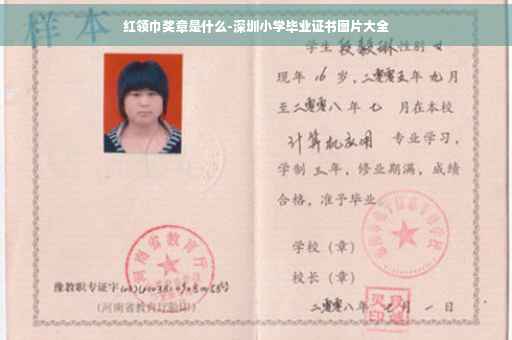 红领巾奖章是什么-深圳小学毕业证书图片大全
样本
学生 段毅琳 性别 女
现年 16 岁,二零零五年 九 月
至二零零八年 七 月在本校
计算机应用 专业学习,
学制 三 年,修业期满,成绩
合格,准予毕业
学校(章)
校长(章)
二零零八年 七 月 一 日
河南省教育厅
豫教职专证字
(河南省教育厅验印)